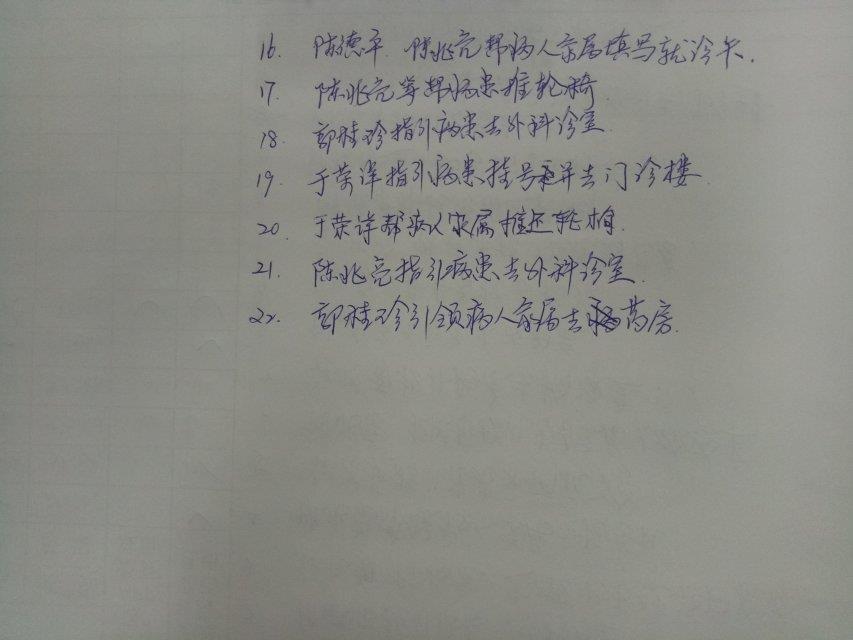 16. 陈德平、陈兆亮帮病人家属填写就诊卡.
17. 陈兆亮帮病患推轮椅
18. 郭桂珍指引病患去外科诊室
19. 于荣祥指引病患挂号并去门诊楼
20. 于荣祥帮病人家属推还轮椅.
21. 陈兆亮指引病患去外科诊室.
22. 郭桂珍引领病人家属去药房.